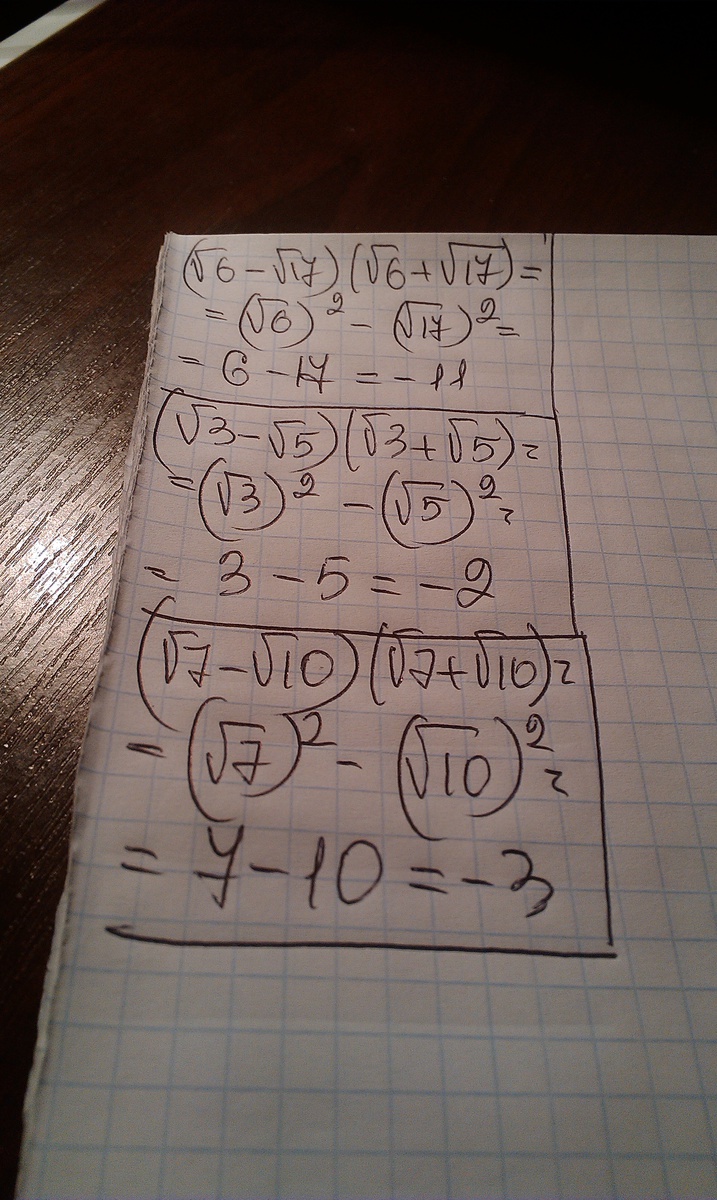 (√6 - √17)(√6 + √17) =
= (√6)² - (√17)² =
= 6 - 17 = -11
(√3 - √5)(√3 + √5) =
= (√3)² - (√5)² =
= 3 - 5 = -2
(√7 - √10)(√7 + √10) =
= (√7)² - (√10)² =
= 7 - 10 = -3